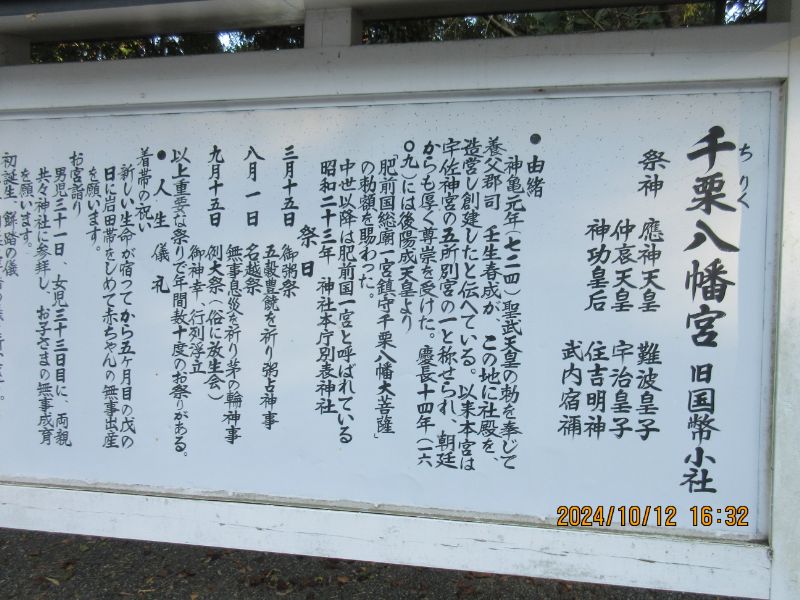 千栗八幡宮 旧国幣小社
ちりく
祭神 應神天皇 難波皇子
仲哀天皇 宇治皇子
神功皇后 住吉明神
武内宿禰
●由緒
神亀元年(七二四)聖武天皇の勅を奉じて
養父郡司 壬生春成が この地に社殿を、
造営し創建したと伝へている。以来本宮は
宇佐神宮の五所別宮の一と称せられ、朝廷
からも厚く尊崇を受けた。慶長十四年(一六
〇九)には後陽成天皇より
「肥前国総廟一宮鎮守千栗八幡大菩薩」
の勅額を賜わった。
中世以降は肥前国一宮と呼ばれている
昭和二十三年 神社本庁別表神社
祭日
三月十五日 御粥祭
五穀豊饒を祈り粥占神事
八月一日 名越祭
無事息災を祈り茅の輪神事
九月十五日 例大祭(俗に放生会)
御神幸、行列浮立
以上重要な祭りで年間数十度のお祭りがある。
●人生儀礼
着帯の祝い
新しい生命が宿ってから五ヶ月目の戊の
日に岩田帯をしめて赤ちゃんの無事出産
を願います。
お宮詣り
男児三十一日、女児三十三日目に、両親
共々神社に参拝し、お子さまの無事成育
を願います。
初誕生、餅踏の儀
2024/10/12 16:32